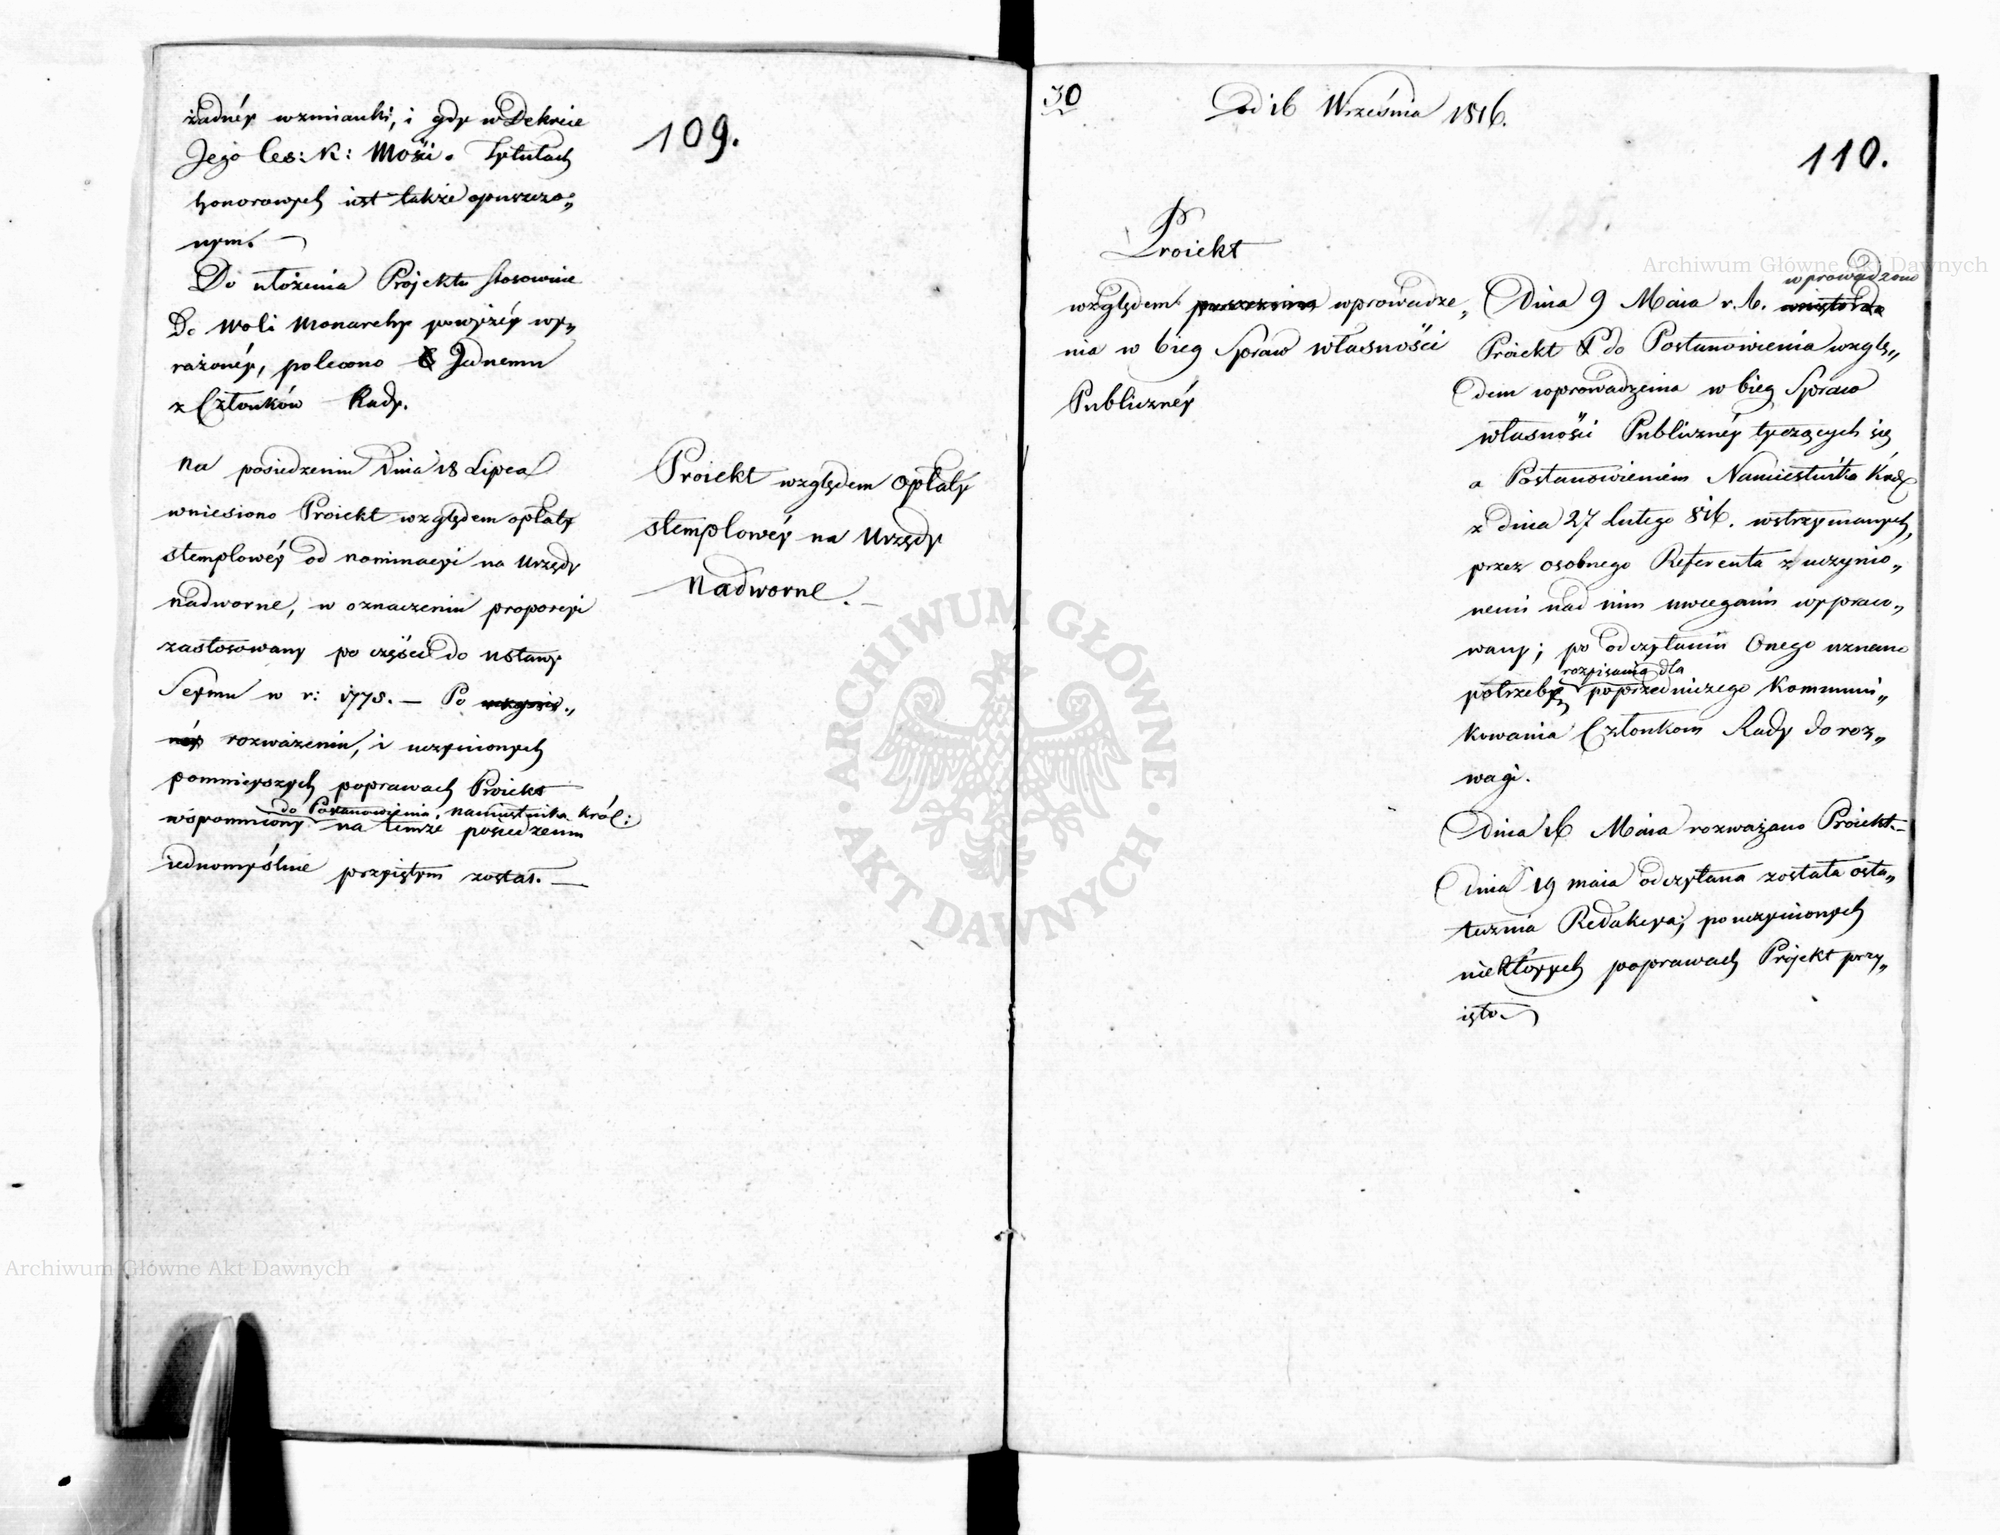 109.
żadnéy wzmianki, i gdy w Dekrecie
Jego Ces: K: Mości o Tytułach
honorowych iest także opuszczo„
nym.
Do ułożenia Projektu stosownie
Do Woli Monarchy powyżéy wy„
rażonéy, polecono Jednemu
z Członków Rady.
Na posiedzeniu Dnia 18 Lipca
wniesiono Proiekt względem opłaty
stemplowéy od nominacyi na Urzędy
nadworne, w oznaczeniu proporcyi
zastosowany po części do Ustawy
Seymu w r: 1775. — Po
rozważeniu, i uczynionych
pomnieyszych poprawach Proiekt
do Postanowienia Namiestnika Król:
wspomniony na temże posiedzeniu
iednomyślnie przyiętym został. —
Proiekt względem Opłaty
stemplowéy na Urzędy
Nadworne. —
30
od 16 Września 1816.
110.
Proiekt
względem wprowadze„
nia w bieg Spraw własności
Publicznéy
wprowadzono
Dnia 9 Maia r. b.
Proiekt do Postanowienia wzglę„
dem wprowadzenia w bieg Spraw
własności Publicznéy tyczących się
a Postanowieniem Namiestnika Król
z dnia 27 Lutego 816. wstrzymanych,
przez osobnego Referenta z uczynio„
nemi nad nim uwagami wypraco„
wany; po odczytaniu Onego uznano
rozpisania dla
potrzebę poprzedniczego Kommuni„
kowania Członkom Rady do roz„
wagi.
Dnia 16 Maia rozważano Proiekt. —
Dnia 19 maia odczytana została osta„
teczna Redakcya; po uczynionych
niektórych poprawach Projekt przy„
ięto.
Archiwum Główne Akt Dawnych
ARCHIWUM GŁÓWNE
AKT DAWNYCH
Archiwum Główne Akt Dawnych